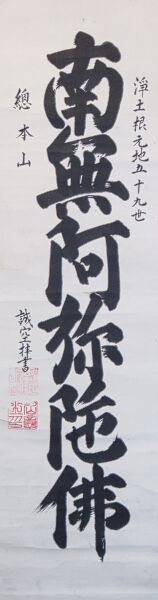 淨土根元地五十九世
南無阿弥陀佛
總本山
誠空拝書